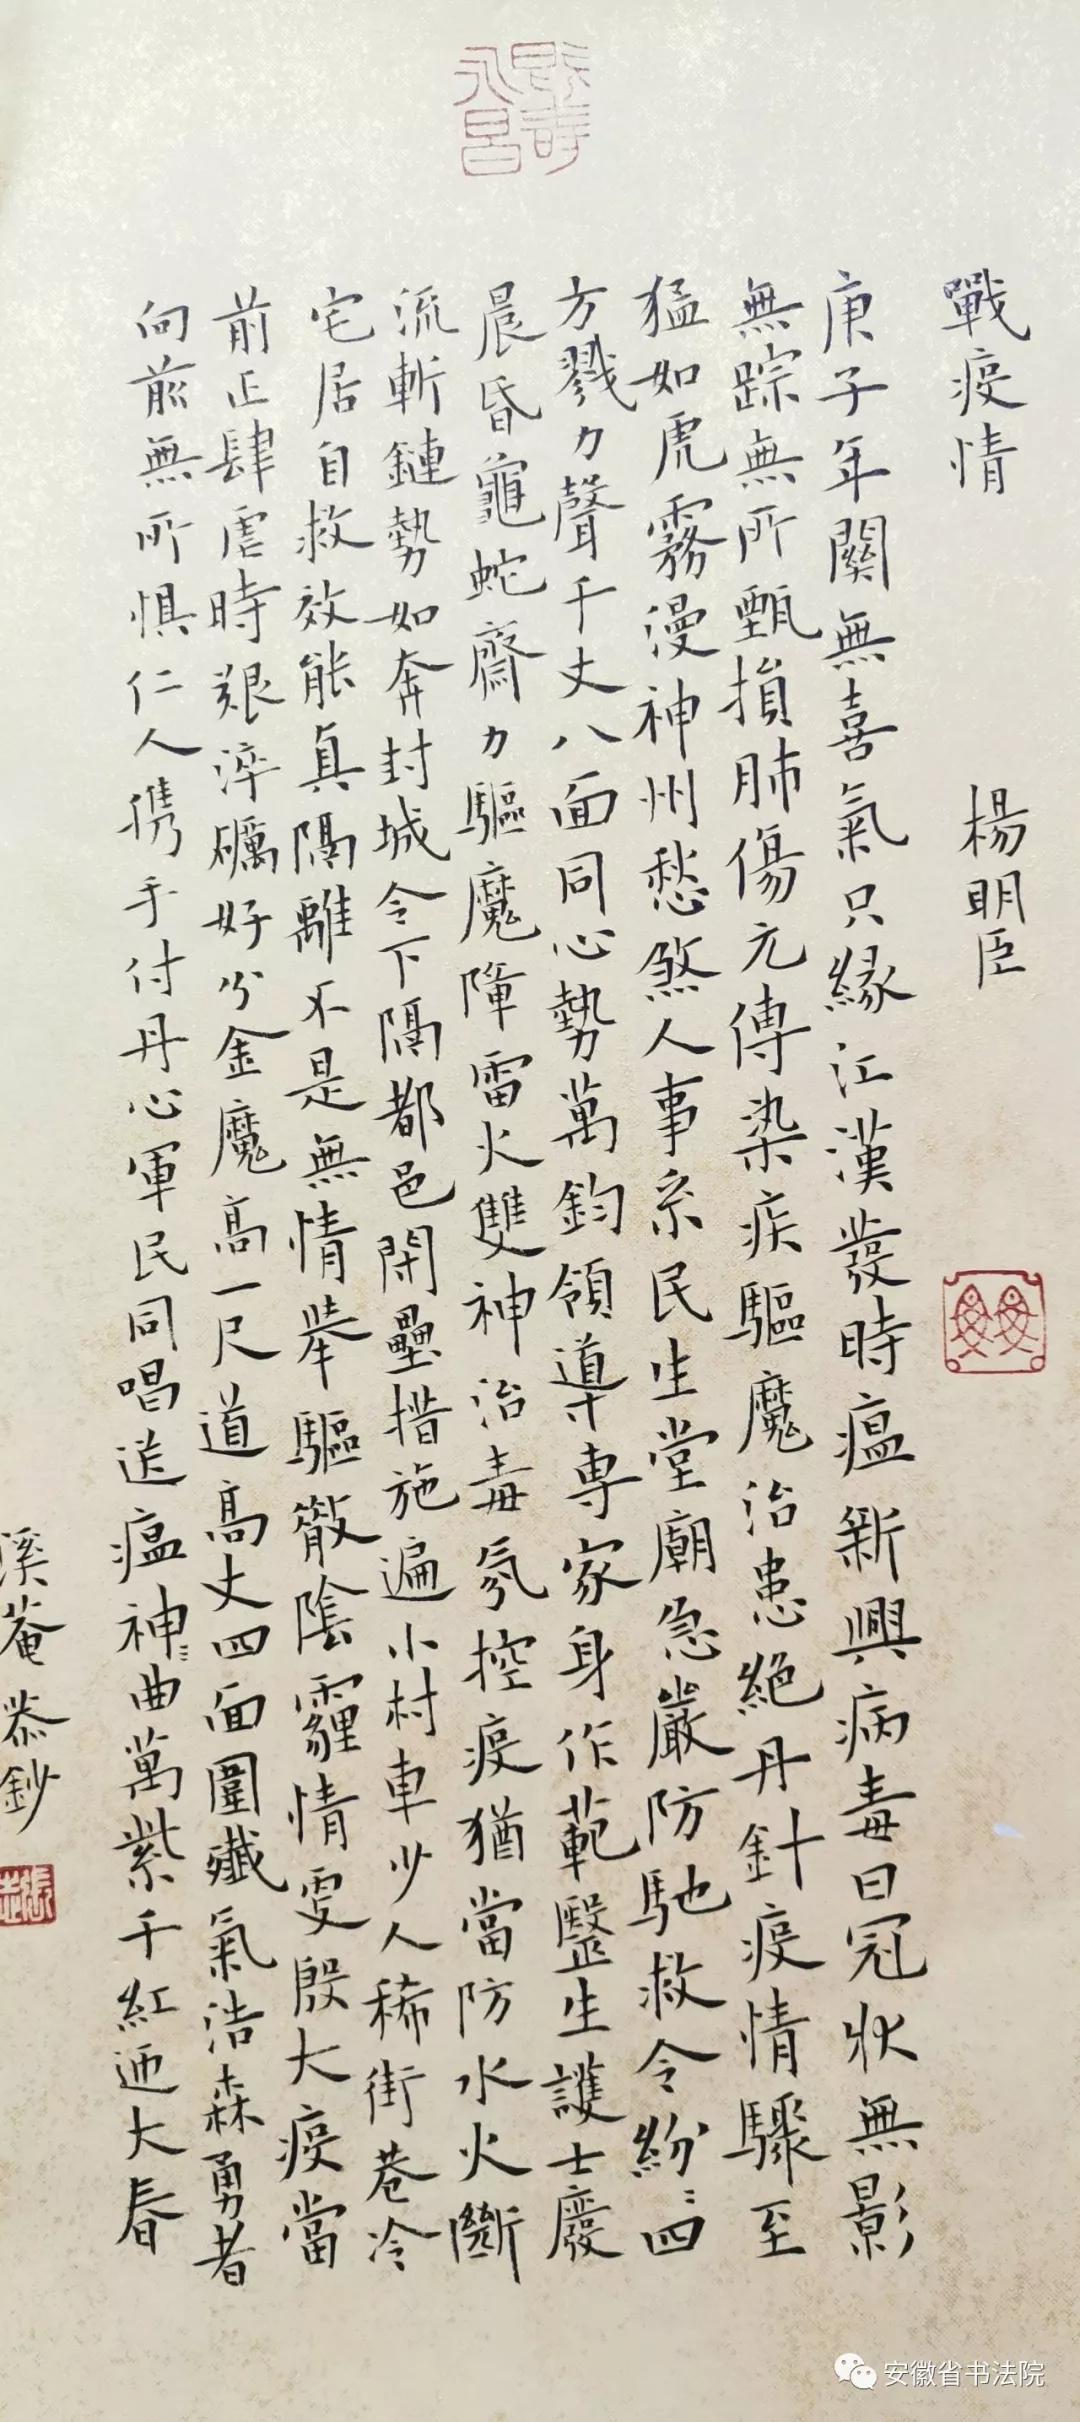 戰疫情
楊明臣
庚子年關無喜氣只緣江漢發時瘟新興病毒曰冠狀無影
無踪無所甄損肺傷元傳染疾驅魔治患絕丹針疫情驟至
猛如虎霧漫神州愁煞人事系民生堂廟急嚴防馳救令紛〻四
方戮力聲千丈八面同心勢萬鈞領導專家身作範醫生護士廢
晨昏龜蛇齋力驅魔障雷火雙神治毒氛控疫猶當防水火斷
流斬鏈勢如奔封城令下隔都邑閉壘措施遍小村車少人稀街巷冷
宅居自救效能真隔離不是無情舉驅散陰霾情更殷大疫當
前正肆虐時艱淬礪好分金魔高一尺道高丈四面圍殲氣浩森勇者
向前無所懼仁人携手付丹心軍民同唱送瘟神〻曲萬紫千紅迎大春
溪菴恭鈔
永昌
安徽省书法院